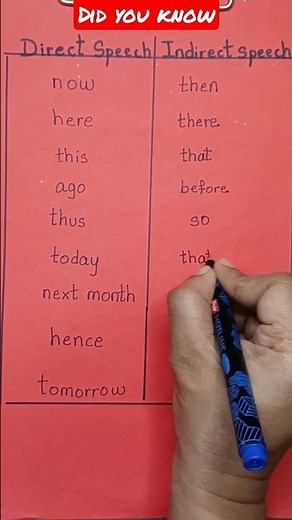 DID YOU KNOW
Direct Speech Indirect speech
now then
here there
this that
ago before
thus so
today that
next month
hence
tomorrow